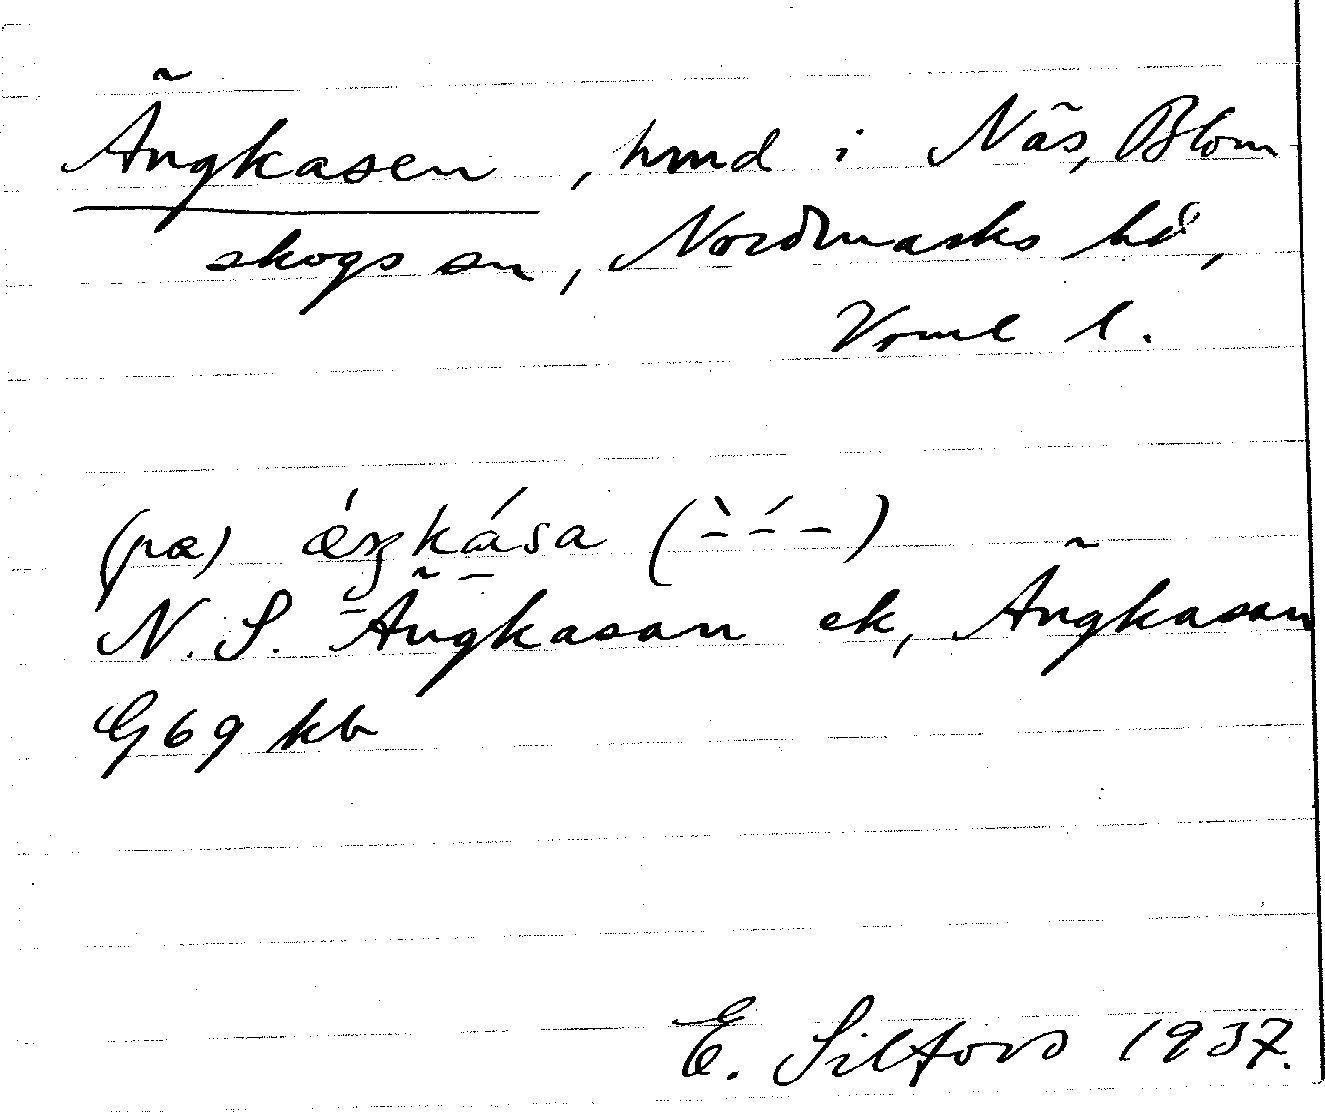 Ängkasen, hmd i Näs, Blom
skogs sn, Nordmarks hd,
Vrml l.
(pæ) ǽŋkása (` ´ –)
N. S. Ängkasan ek, Ängkasan
G69 kb
E. Silfors 1937.